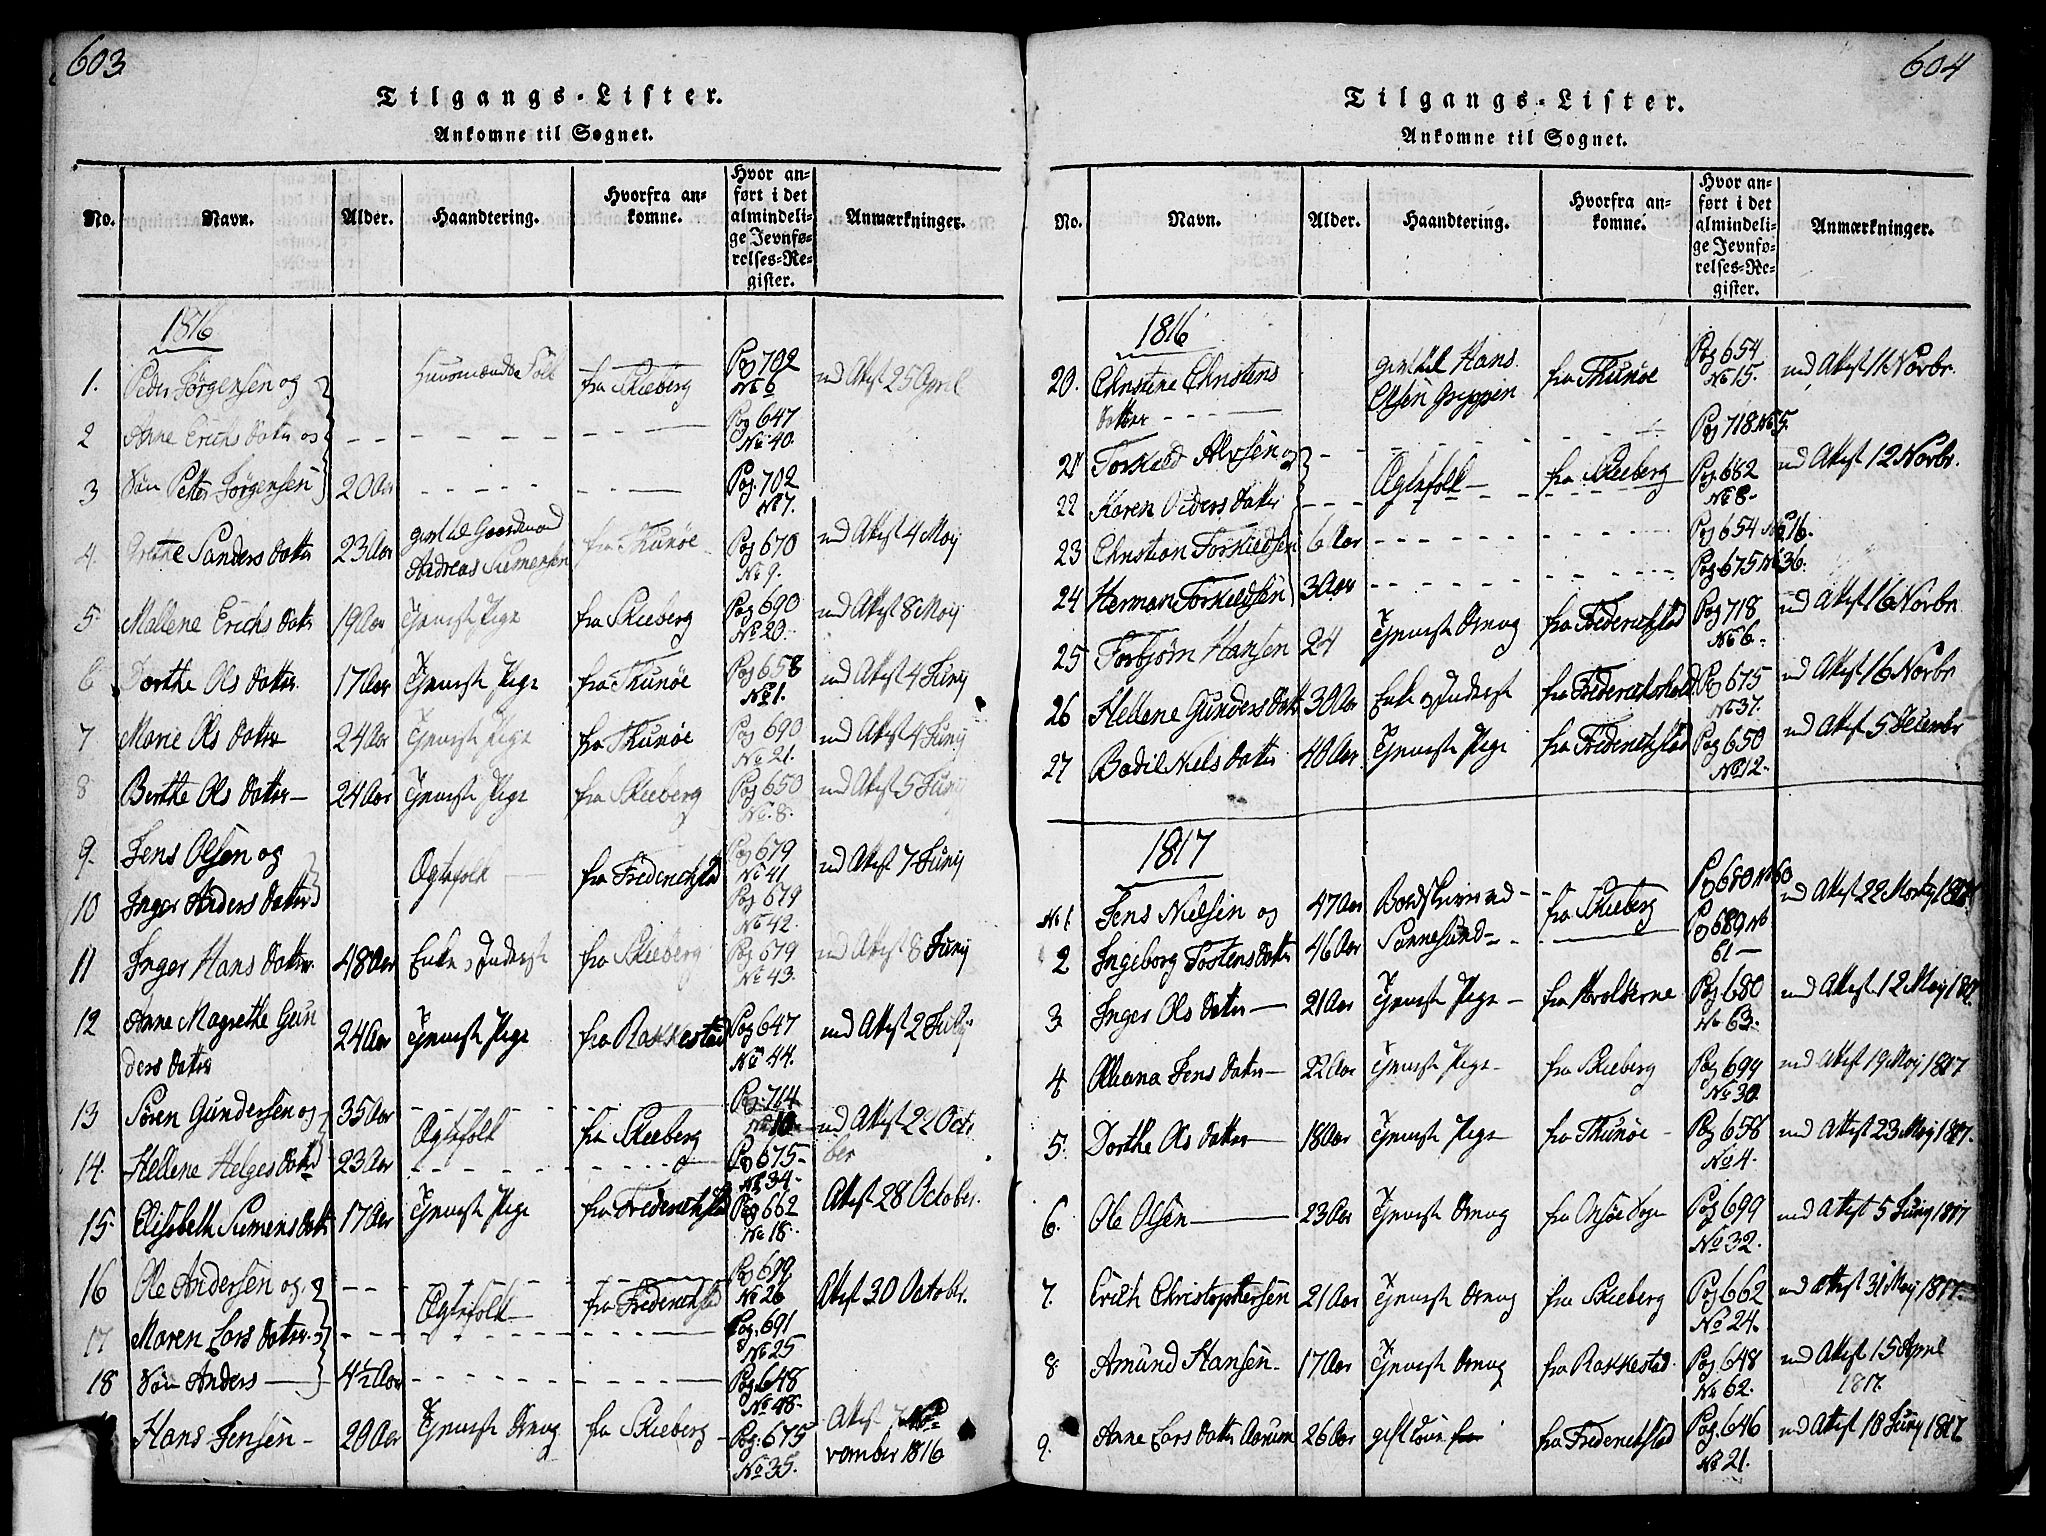 603
Tilgangs-Lister.
Ankomne til Sognet.
No. Navn. Alder. Haandtering. Hvorfra ankomne. Hvor anført i det almindelige Jevnførelses-Register. Anmærkninger.
1816
1. Peder Jørgensen og Huusmands Folk fra Skieberg Pag 702 No 6 md Attest 25 April
2 Anne Erichs datter og Pag 647 No 40.
3 Søn Petter Jørgensen 20 Aar Pag. 702 No 7.
4. Grethe Sanders datter 23 Aar givt til Gaardmand Andreas Siemensen fra Thunøe Pag 670 No 9. md Attest 4 Maij
5. Mallene Erichs datr 19 Aar Tieneste Pige fra Skieberg Pag 690 No 20. md Attest 8 Maij
6 Dorthe Ols datter 17 Aar Tieneste Pige fra Thunøe Pag 658 No 1. md Attest 4 Junij
7 Marie Ols datter 24 Aar Tieneste Pige fra Thunøe Pag 690 No 21. md Attest 4 Junij
8 Berthe Ols datter 24 Aar Tieneste Pige fra Skieberg Pag 650 No. 8. md Attest 5 Junij
9. Jens Olsen og Ægtefolk fra Friderichstad Pag 679 No 41 md Attest 7 Junij
10 Inger Anders datter Pag 679 No 42.
11 Inger Hans datter 48 Aar Enke og Inderst fra Skieberg Pag 679 No 43. md Attest 8 Junij
12 Anne Magrethe Gunders datter 24 Aar Tieneste Pige fra Rakkestad Pag 647 No 44. md Attest 2 Julij
13 Søren Gundersen og 35 Aar Ægtefolk fra Skieberg Pag. 714 No 10 md Attest 22 October
14. Hellene Helges datter 23 Aar Pag 675 No 34
15. Elisabeth Siemens datter 17 Aar Tieneste Pige fra Friderichstad Pag 662 No 18. Attest 28 October.
16 Ole Andersen og Ægtefolk fra Friderichstad Pag 699 No 26 Attest 30 Octobr.
17 Maren Lars datter Pag. 691 No 25
18 Søn Anders 4½ Aar Pag. 648 No 48.
Hans Jensen 20 Aar Tieneste Dreng fra Skieberg Pag. 675 No 35. Attest 7 November 1816
604
Tilgangs-Lister.
Ankomne til Sognet.
No. Navn. Alder. Haandtering. Hvorfra ankomne. Hvor anført i det almindelige Jevnførelses-Register. Anmærkninger.
1816
20. Christine Christens datter givt til Hans Olsen Greppen fra Thunøe Pag 654 No 15. md Attest 11 Novbr.
21 Torkild Alvsen og Ægtefolk fra Skieberg Pag 718 No 5. md Attest 12 Novbr.
22 Karen Peders datter Pag. 682 No 8
23 Christian Torkildsen 6 Aar Pag 654 No 16.
24 Herman Torkildsen 3 Aar Pag. 675 No 36.
25 Torbjørn Hansen 24 Tieneste Dreng fra Friderichstad Pag 718 No 6. md Attest 16 Novbr
26 Hellene Gunders datter 30 Aar Enke og Inderst fra Friderichshald Pag 675 No 37. md Attest 16 Novbr
27 Bodil Niels datter 40 Aar Tieneste Pige fra Friderichstad Pag 650 No 12. md Attest 5 Decembr
1817
No 1. Jens Nielsen og 47 Aar fra Skieberg Pag 680 No 60 md Attest 22 Martij 1817
2 Ingeborg Tostens datter 46 Aar Sannesund Pag 680 No 61
3 Inger Ols datter 21 Aar Tieneste Pige fra Hvalöerne Pag. 680 No 63. md Attest. 12 Maij 1817
4 Oleana Jens datter 22 Aar Tieneste Pige fra Skieberg Pag 699 No 30. md Attest 19 Maij 1817
5. Dorthe Ols datter 18 Aar Tieneste Pige fra Thunøe Pag 658 No 4. md Attest 23 Maij 1817.
6. Ole Olsen 23 Aar Tieneste Dreng fra Onsøe Sogn Pag 699 No 32. md Attest 5 Junij 1817
7. Erich Christophersen 21 Aar Tieneste Dreng fra Skieberg Pag 662 No 24. md Attest 31 Maij 1817
8. Amund Hansen 17 Aar Tieneste Dreng fra Rakkestad Pag. 648 No 62. md Attest 15 April 1817.
9. Anne Lars datter Aarum 26 Aar fra Friderichstad Pag. 646 No 21. md Attest 18 Junij 1817